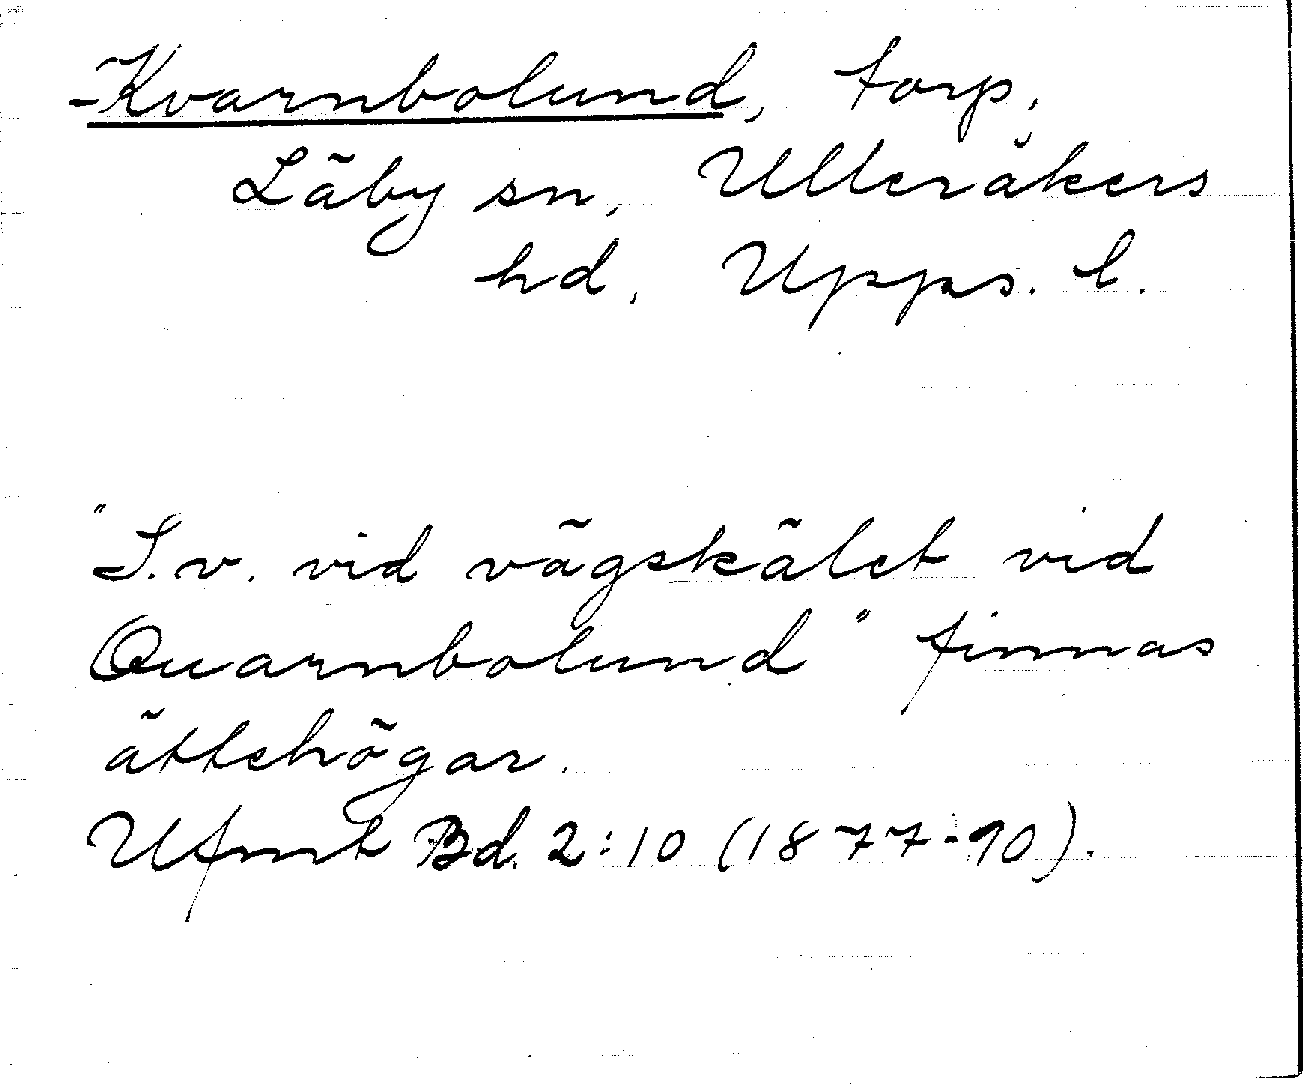 -Kvarnbolund, torp,
Läby sn, Ulleråkers
hd, Upps. l.
"S.v. vid vägskälet vid
Quarnbolund" finnas
ättehögar.
Ufmt Bd. 2:10 (1877-90).